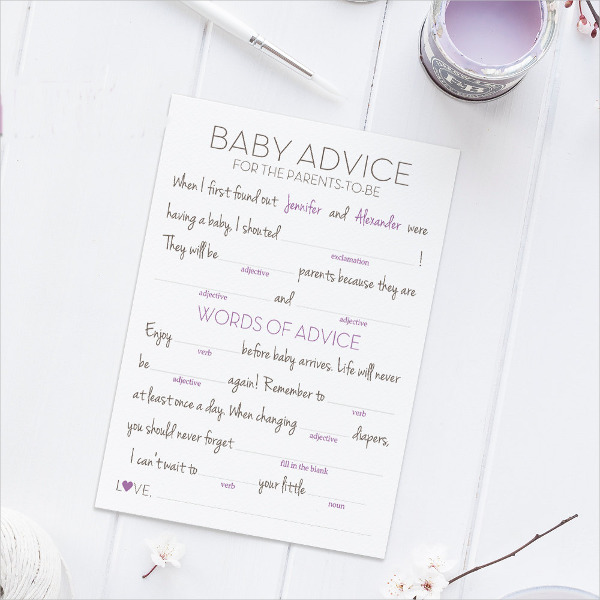 BABY ADVICE
FOR THE PARENTS-TO-BE
When I first found out Jennifer and Alexander were
having a baby, I shouted !
exclamation
They will be parents because they are
adjective
and
adjective adjective
WORDS OF ADVICE
Enjoy before baby arrives. Life will never
verb
be again! Remember to
adjective verb
at least once a day. When changing diapers,
adjective
you should never forget
fill in the blank
I can't wait to your little
verb noun
LOVE,